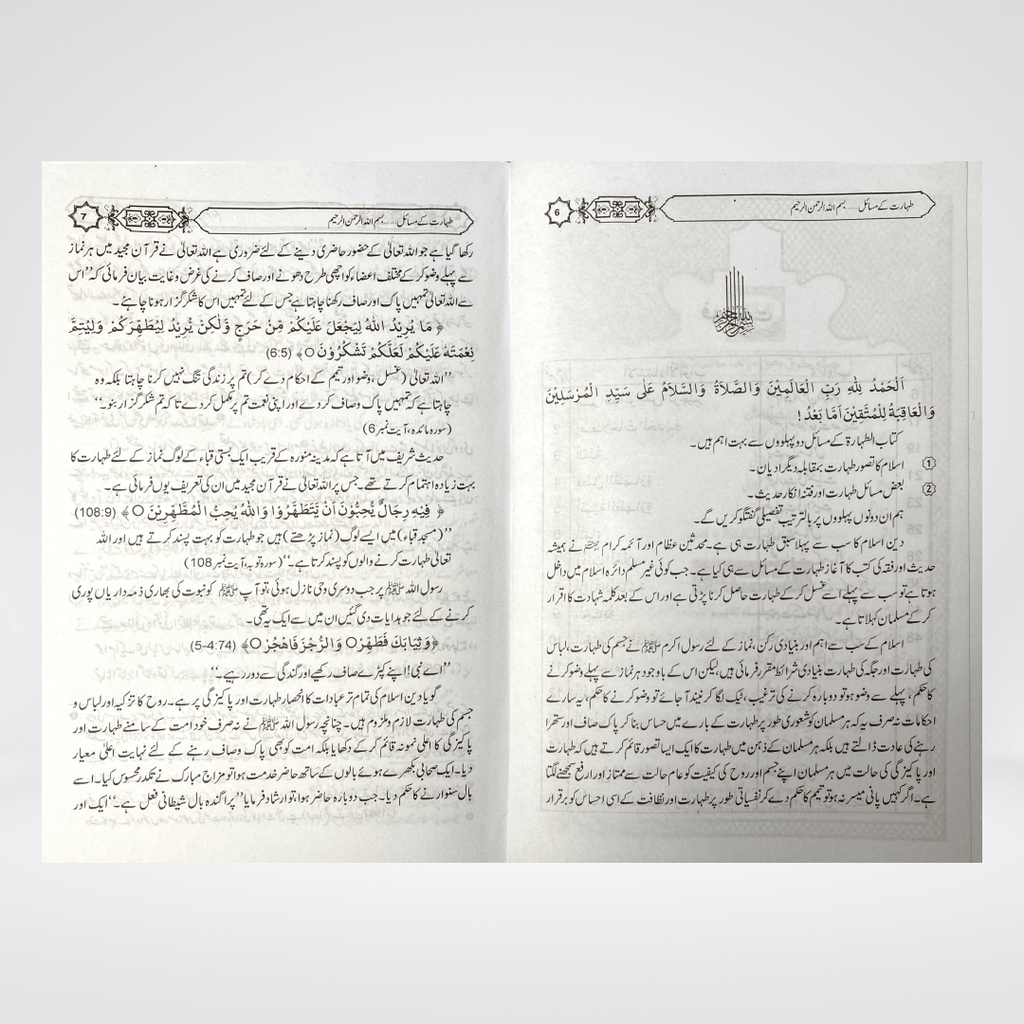 طہارت کے مسائل ..... بسم اللہ الرحمٰن الرحیم
6
اَلْحَمْدُ لِلّٰهِ رَبِّ الْعَالَمِيْنَ وَالصَّلَاةُ وَالسَّلَامُ عَلٰى سَيِّدِ الْمُرْسَلِيْنَ
وَالْعَاقِبَةُ لِلْمُتَّقِيْنَ اَمَّا بَعْدُ !
کتاب الطہارۃ کے مسائل دو پہلوؤں سے بہت اہم ہیں۔
① اسلام کا تصور طہارت بمقابلہ دیگر ادیان۔
② بعض مسائل طہارت اور فتنہ انکار حدیث۔
ہم ان دونوں پہلوؤں پر بالترتیب تفصیلی گفتگو کریں گے۔
دین اسلام کا سب سے پہلا سبق طہارت ہی ہے۔ محدثین عظام اور آئمہ کرام نے ہمیشہ
حدیث اور فقہ کی کتب کا آغاز طہارت کے مسائل سے ہی کیا ہے۔ جب کوئی غیر مسلم دائرہ اسلام میں داخل
ہوتا ہے تو سب سے پہلے اسے غسل کر کے طہارت حاصل کرنا پڑتی ہے اور اس کے بعد کلمہ شہادت کا اقرار
کر کے مسلمان کہلاتا ہے۔
اسلام کے سب سے اہم اور بنیادی رکن، نماز کے لئے رسول اکرم ﷺ نے جسم کی طہارت، لباس
کی طہارت اور جگہ کی طہارت بنیادی شرائط مقرر فرمائی ہیں، لیکن اس کے باوجود ہر نماز سے پہلے وضو کرنے
کا حکم، پہلے سے وضو ہو تو دوبارہ کرنے کی ترغیب، ٹیک لگا کر نیند آ جائے تو وضو کرنے کا حکم، یہ سارے
احکامات نہ صرف یہ کہ ہر مسلمان کو شعوری طور پر طہارت کے بارے میں حساس بنا کر پاک صاف اور ستھرا
رہنے کی عادت ڈالتے ہیں بلکہ ہر مسلمان کے ذہن میں طہارت کا ایک ایسا تصور قائم کرتے ہیں کہ طہارت
اور پاکیزگی کی حالت میں ہر مسلمان اپنے جسم اور روح کی کیفیت کو عام حالت سے ممتاز اور ارفع سمجھنے لگتا
ہے۔ اگر کہیں پانی میسر نہ ہو تو تیمم کا حکم دے کر نفسیاتی طور پر طہارت اور نظافت کے اسی احساس کو برقرار
طہارت کے مسائل ..... بسم اللہ الرحمٰن الرحیم
7
رکھا گیا ہے جو اللہ تعالیٰ کے حضور حاضری دینے کے لئے ضروری ہے اللہ تعالیٰ نے قرآن مجید میں ہر نماز
سے پہلے وضو کر کے مختلف اعضاء کو اچھی طرح دھونے اور صاف کرنے کی غرض و غایت بیان فرمائی کہ ’’اس
سے اللہ تعالیٰ تمہیں پاک اور صاف رکھنا چاہتا ہے جس کے لئے تمہیں اس کا شکر گزار ہونا چاہئے۔
﴿ مَا يُرِيْدُ اللّٰهُ لِيَجْعَلَ عَلَيْكُمْ مِّنْ حَرَجٍ وَّلٰكِنْ يُّرِيْدُ لِيُطَهِّرَكُمْ وَلِيُتِمَّ
نِعْمَتَهٗ عَلَيْكُمْ لَعَلَّكُمْ تَشْكُرُوْنَ ○ ﴾ (6:5)
’’اللہ تعالیٰ (غسل، وضو اور تیمم کے احکام دے کر) تم پر زندگی تنگ نہیں کرنا چاہتا بلکہ وہ
چاہتا ہے کہ تمہیں پاک و صاف کر دے اور اپنی نعمت تم پر مکمل کر دے تاکہ تم شکر گزار بنو۔‘‘
(سورہ مائدہ، آیت نمبر 6)
حدیث شریف میں آتا ہے کہ مدینہ منورہ کے قریب ایک بستی قباء کے لوگ نماز کے لئے طہارت کا
بہت زیادہ اہتمام کرتے تھے۔ جس پر اللہ تعالیٰ نے قرآن مجید میں ان کی تعریف یوں فرمائی ہے۔
﴿ فِيْهِ رِجَالٌ يُّحِبُّوْنَ اَنْ يَّتَطَهَّرُوْا وَاللّٰهُ يُحِبُّ الْمُطَّهِّرِيْنَ ○ ﴾ (108:9)
’’(مسجد قباء) میں ایسے لوگ (نماز پڑھتے) ہیں جو طہارت کو بہت پسند کرتے ہیں اور اللہ
تعالیٰ طہارت کرنے والوں کو پسند کرتا ہے۔‘‘ (سورہ توبہ، آیت نمبر 108)
رسول اللہ ﷺ پر جب دوسری وحی نازل ہوئی، تو آپ ﷺ کو نبوت کی بھاری ذمہ داریاں پوری
کرنے کے لئے جو ہدایات دی گئیں ان میں سے ایک یہ تھی۔
﴿وَثِيَابَكَ فَطَهِّرْ○ وَالرُّجْزَ فَاهْجُرْ○﴾ (74:4-5)
’’اے نبی! اپنے کپڑے صاف رکھیے اور گندگی سے دور رہیے۔‘‘
گویا دین اسلام کی تمام تر عبادات کا انحصار طہارت اور پاکیزگی پر ہے۔ روح کا تزکیہ اور لباس و
جسم کی طہارت لازم و ملزوم ہیں۔ چنانچہ رسول اللہ ﷺ نے نہ صرف خود امت کے سامنے طہارت اور
پاکیزگی کا اعلیٰ نمونہ قائم کر کے دکھایا بلکہ امت کو بھی پاک و صاف رہنے کے لئے نہایت اعلیٰ معیار
دیا۔ ایک صحابی بکھرے ہوئے بالوں کے ساتھ حاضر خدمت ہوا تو مزاج مبارک نے تکدر محسوس کیا۔ اسے
بال سنوارنے کا حکم دیا۔ جب دوبارہ حاضر ہوا، تو ارشاد فرمایا ’’پراگندہ بال شیطانی فعل ہے۔‘‘ ایک اور